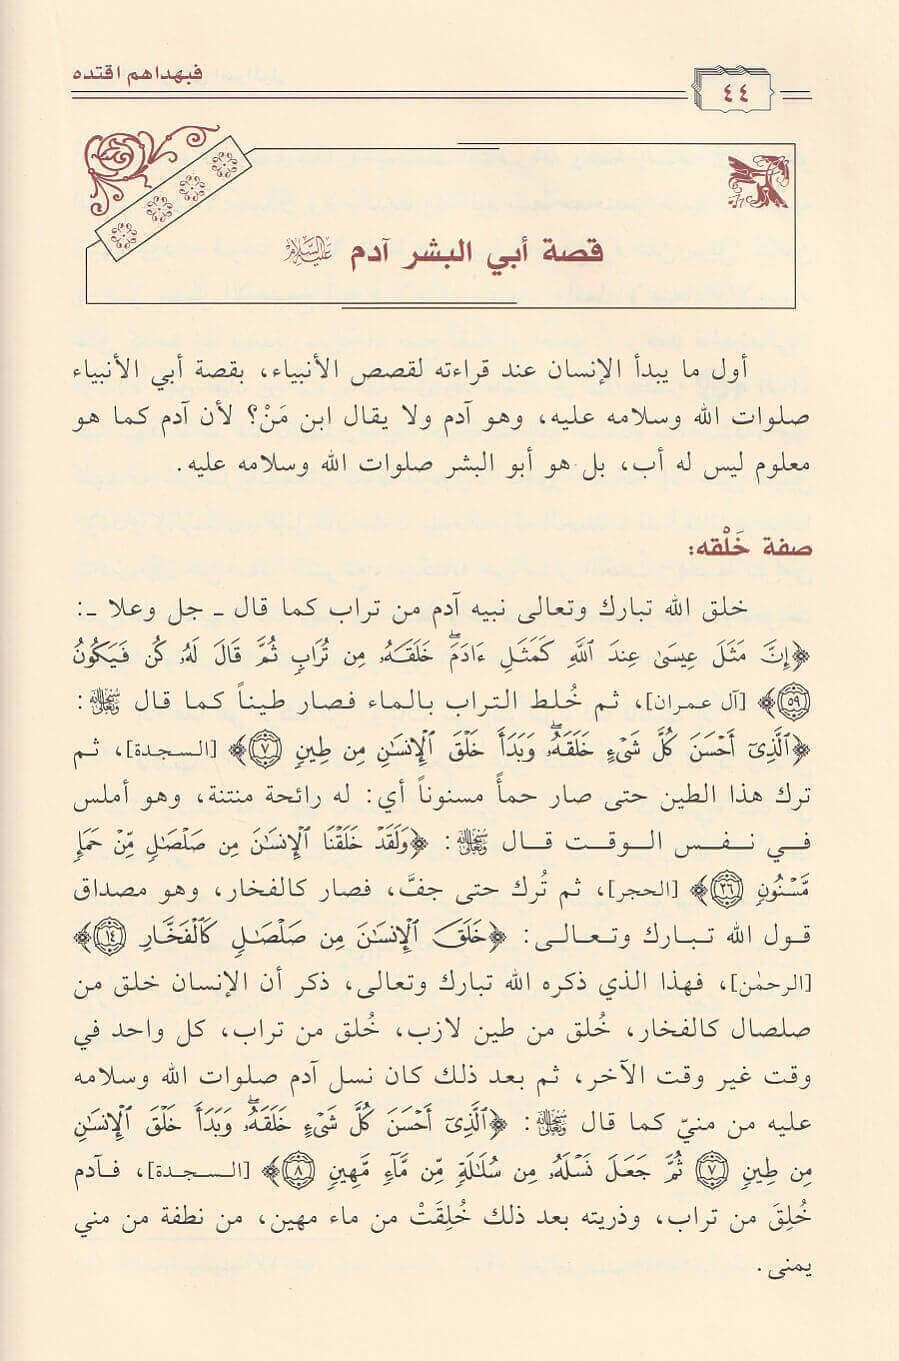 فبهداهم اقتده
٤٤
قصة أبي البشر آدم عليه السلام
أول ما يبدأ الإنسان عند قراءته لقصص الأنبياء، بقصة أبي الأنبياء
صلوات الله وسلامه عليه، وهو آدم ولا يقال ابن مَنْ؟ لأن آدم كما هو
معلوم ليس له أب، بل هو أبو البشر صلوات الله وسلامه عليه.
صفة خَلْقه:
خلق الله تبارك وتعالى نبيه آدم من تراب كما قال ـ جل وعلا ـ:
﴿إِنَّ مَثَلَ عِيسَىٰ عِندَ ٱللَّهِ كَمَثَلِ ءَادَمَۖ خَلَقَهُۥ مِن تُرَابٖ ثُمَّ قَالَ لَهُۥ كُن فَيَكُونُ
٥٩﴾ [آل عمران]، ثم خُلط التراب بالماء فصار طيناً كما قال سبحانه وتعالى:
﴿ٱلَّذِيٓ أَحۡسَنَ كُلَّ شَيۡءٍ خَلَقَهُۥۖ وَبَدَأَ خَلۡقَ ٱلۡإِنسَٰنِ مِن طِينٖ ٧﴾ [السجدة]، ثم
ترك هذا الطين حتى صار حمأً مسنوناً أي: له رائحة منتنة، وهو أملس
في نفس الوقت قال سبحانه وتعالى: ﴿وَلَقَدۡ خَلَقۡنَا ٱلۡإِنسَٰنَ مِن صَلۡصَٰلٖ مِّنۡ حَمَإٖ
مَّسۡنُونٖ ٢٦﴾ [الحجر]، ثم تُرك حتى جفَّ، فصار كالفخار، وهو مصداق
قول الله تبارك وتعالى: ﴿خَلَقَ ٱلۡإِنسَٰنَ مِن صَلۡصَٰلٖ كَٱلۡفَخَّارِ ١٤﴾
[الرحمٰن]، فهذا الذي ذكره الله تبارك وتعالى، ذكر أن الإنسان خلق من
صلصال كالفخار، خُلق من طين لازب، خُلق من تراب، كل واحد في
وقت غير وقت الآخر، ثم بعد ذلك كان نسل آدم صلوات الله وسلامه
عليه من منيّ كما قال سبحانه وتعالى: ﴿ٱلَّذِيٓ أَحۡسَنَ كُلَّ شَيۡءٍ خَلَقَهُۥۖ وَبَدَأَ خَلۡقَ ٱلۡإِنسَٰنِ
مِن طِينٖ ٧ ثُمَّ جَعَلَ نَسۡلَهُۥ مِن سُلَٰلَةٖ مِّن مَّآءٖ مَّهِينٖ ٨﴾ [السجدة]، فآدم
خُلِقَ من تراب، وذريته بعد ذلك خُلِقَتْ من ماء مهين، من نطفة من مني
يمنى.